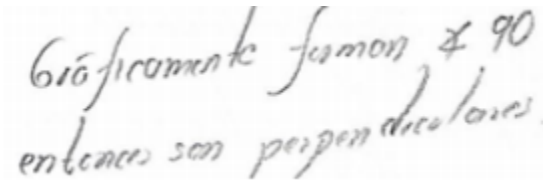 Gráficamente forman ∡ 90
entonces son perpendiculares.